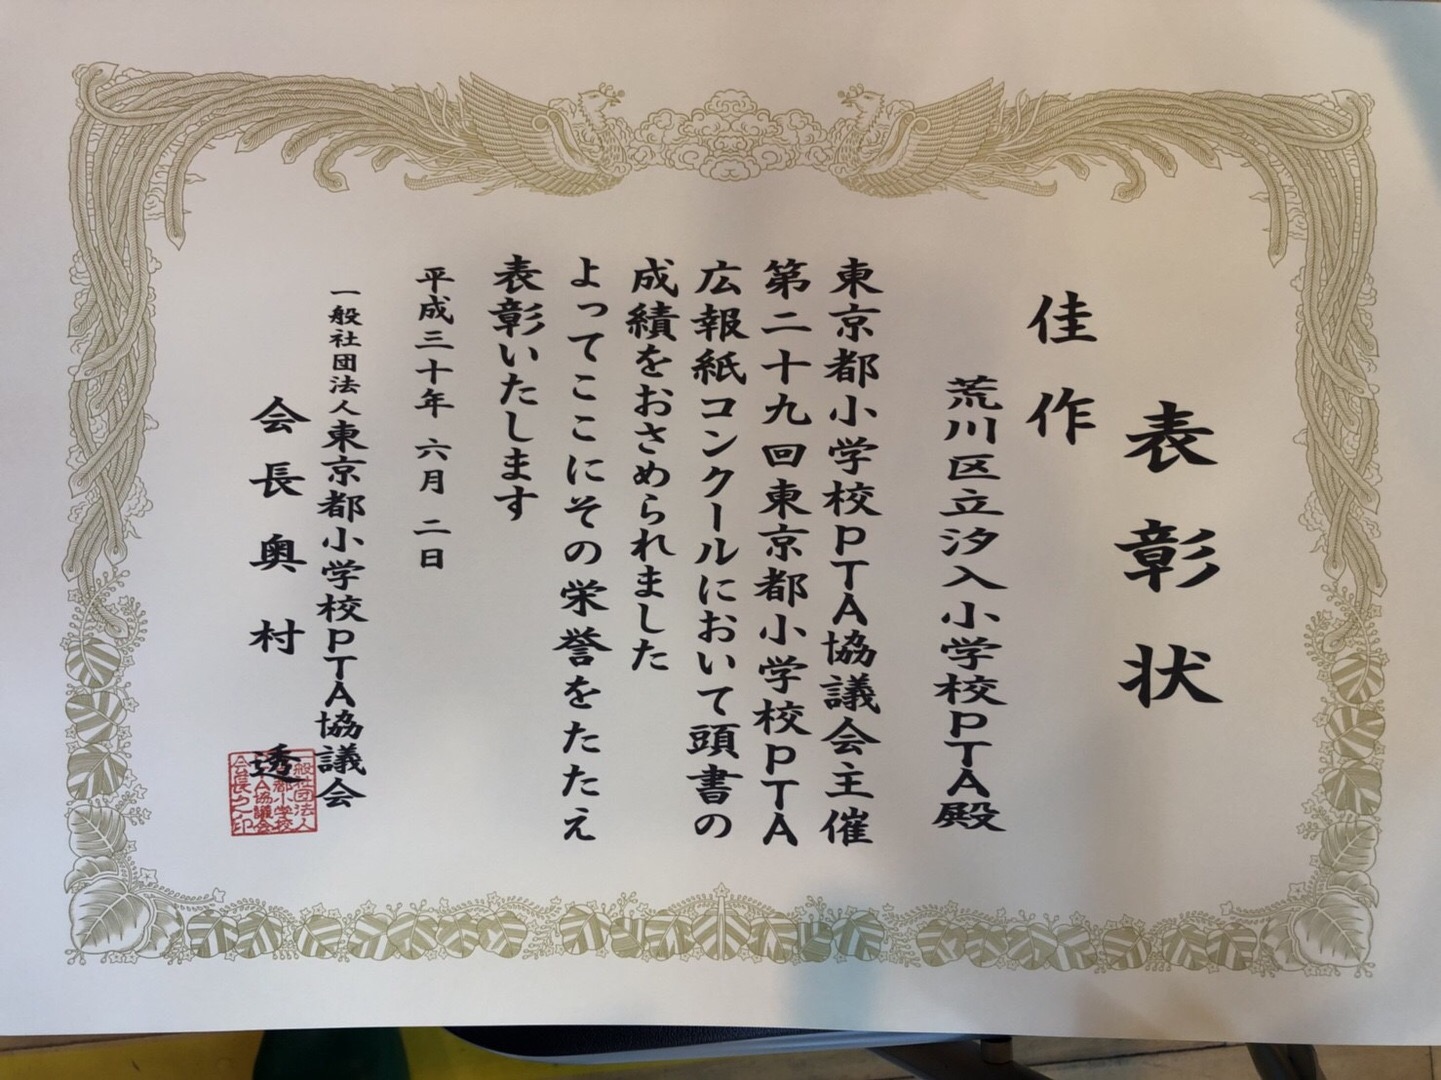 表彰状
佳作
荒川区立汐入小学校PTA殿
東京都小学校PTA協議会主催
第二十九回東京都小学校PTA
広報紙コンクールにおいて頭書の
成績をおさめられました
よってここにその栄誉をたたえ
表彰いたします
平成三十年六月二日
一般社団法人東京都小学校PTA協議会
会長奥村透